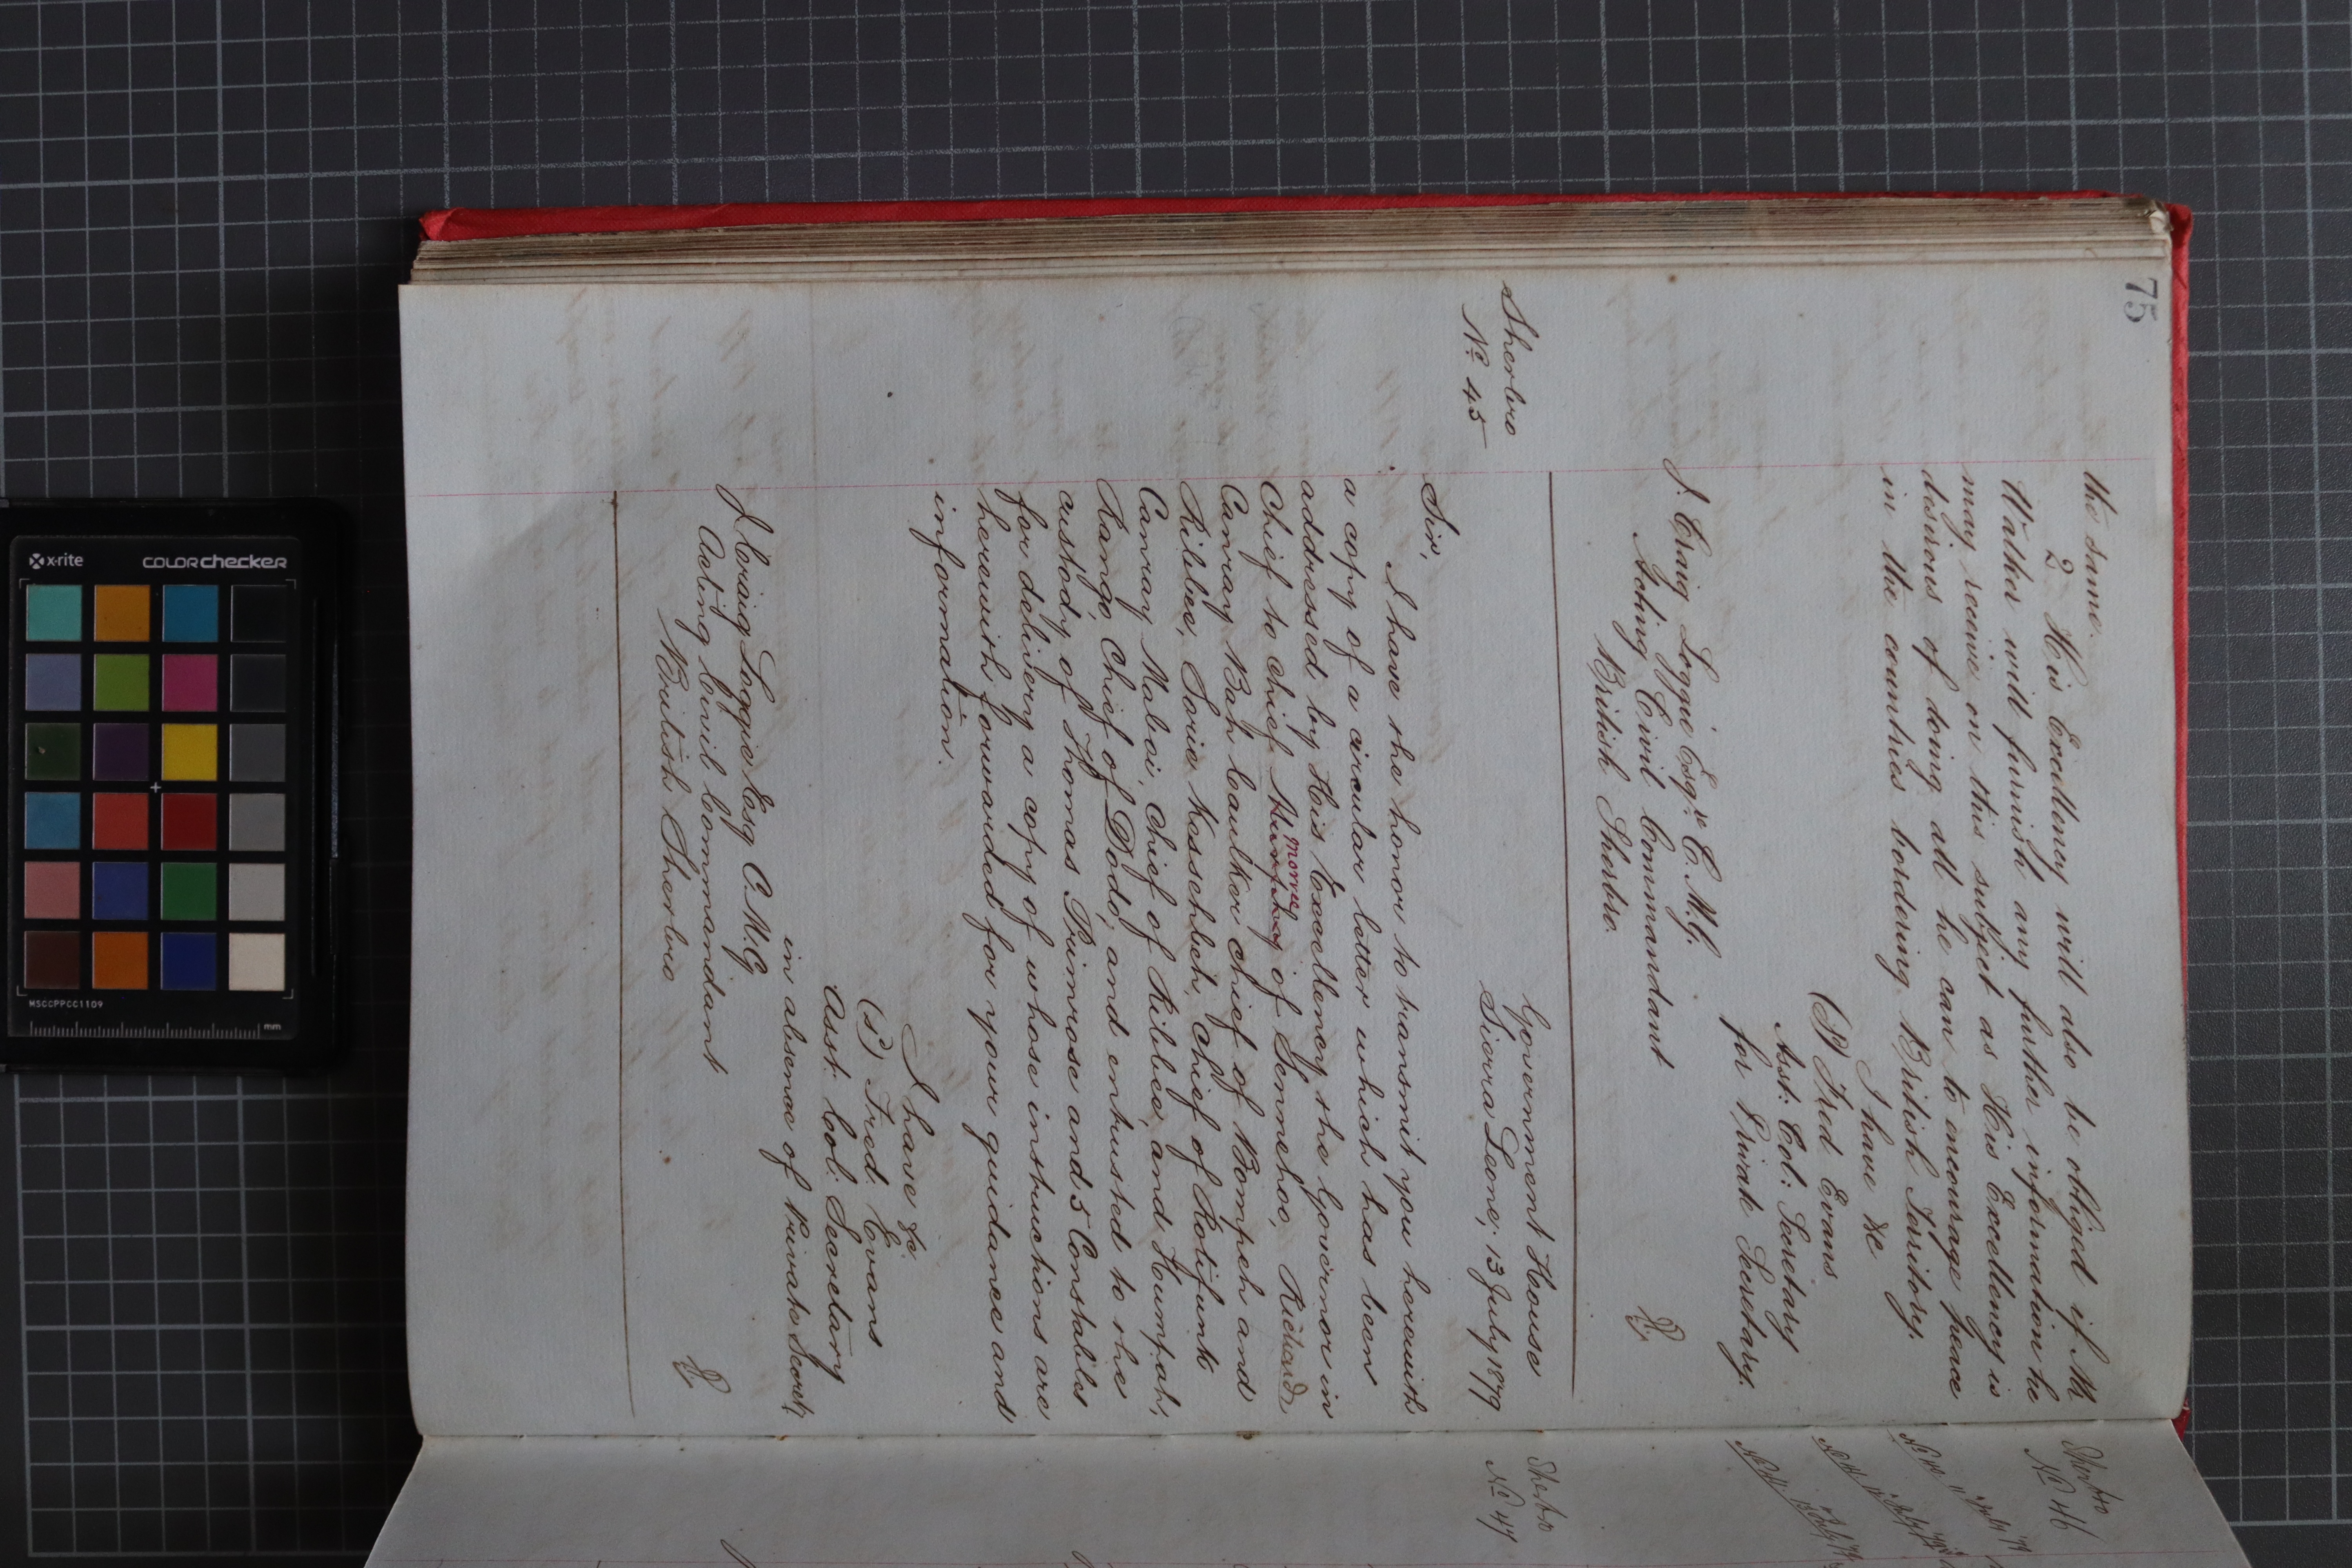 75
the same.
2 His Excellency will also be obliged if Mr
Walker will furnish any further information he
may receive on this subject as His Excellency is
desirous of doing all he can to encourage peace
in the countries bordering British Territory.
I have &c
(S) Fred Evans
Asst: Col: Secretary
for Private Secretary.
J. Craig Loggie Esqre C.M.G.
Acting Civil Commandant
British Sherbro.
Sherbro
No 45
Government House
Sierra Leone, 13 July 1879
Sir,
I have the honor to transmit you herewith
a copy of a circular letter which has been
addressed by His Excellency the Governor in
Chief to Chief Humphrey of Semmehoo, Richard
Morvee
Canray Bah Caulker Chief of Bompeh and
Ribbee, Sorie Kessebeh, Chief of Rotifunk
Canray Maboi, Chief of Ribbee, and Humpah
Rango, Chief of Dodo, and entrusted to the
custody of Thomas Primrose and 5 Constables
for delivery a copy of whose instructions are
herewith forwarded for your guidance and
information.
I have &c.
(s) Fred. Evans
Asst: Col: Secretary
in absence of Private Secrety
J Craig Loggie Esq C.M.G.
Acting Civil Commandant
British Sherbro
Sherbro
No 46
Sherbro
No 47
MSCCPPCC1109
x-rite
colorchecker
mm